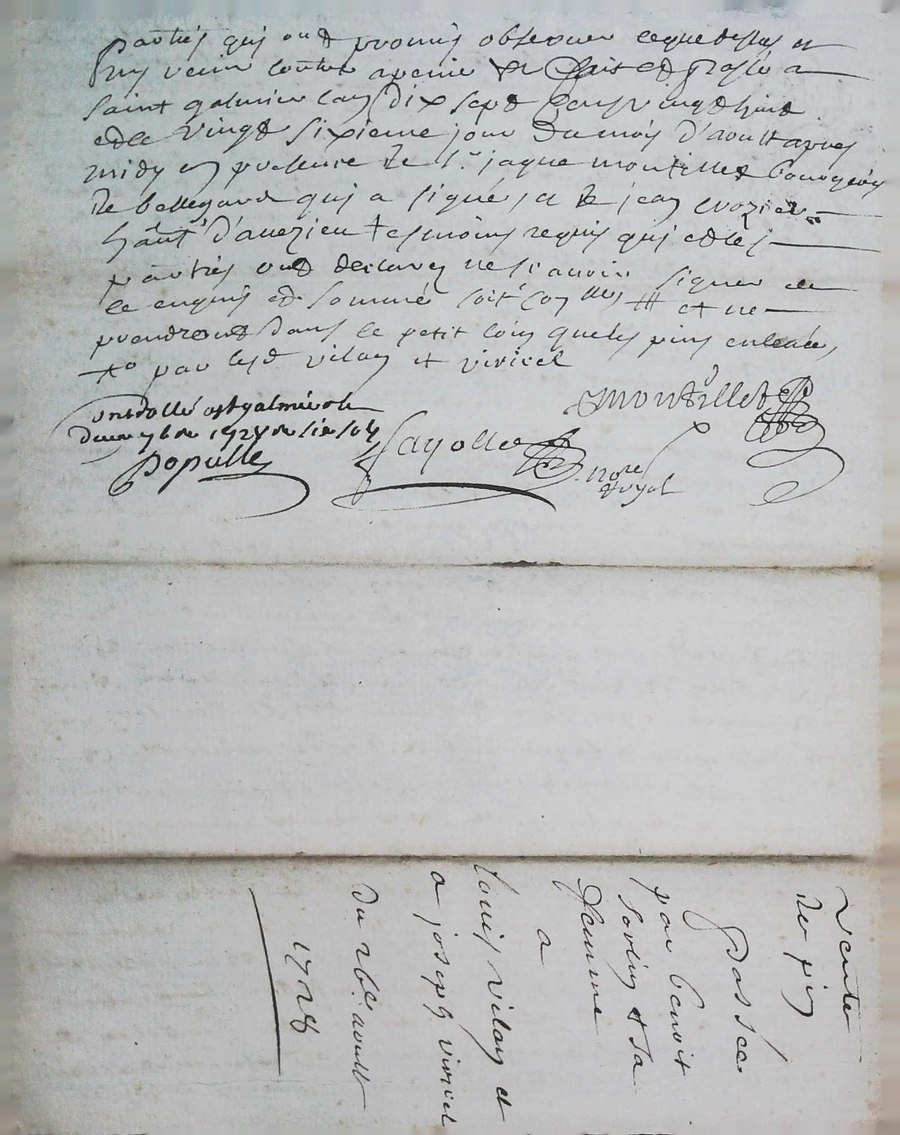 parties qui ont promis observer ceque dessus et
venir contre avenir fait et passé a
saint galmier lan dix sept cens vingt huit
et le vingt sixieme jour du mois d'aoust apres
midy en presence de sr jaque montillet bourgeois
de bellegarde qui a signé et de jean crozier
hãnt d'aveizieu tesmoins requis qui et les
parties ont declaré ne scavoir signer de
ce enquis et sommé soit conllé et ne
prendront dans le petit loin que les pins
par lesd vilan et viricel
Montillet
Controllé a St galmier le
1728
Populle
Fayolle
nore
royal
vente
de pin
Passée
par benoit
et sa
femme
a
louis vilan et
a joseph viricel
du 26e aoust
1728